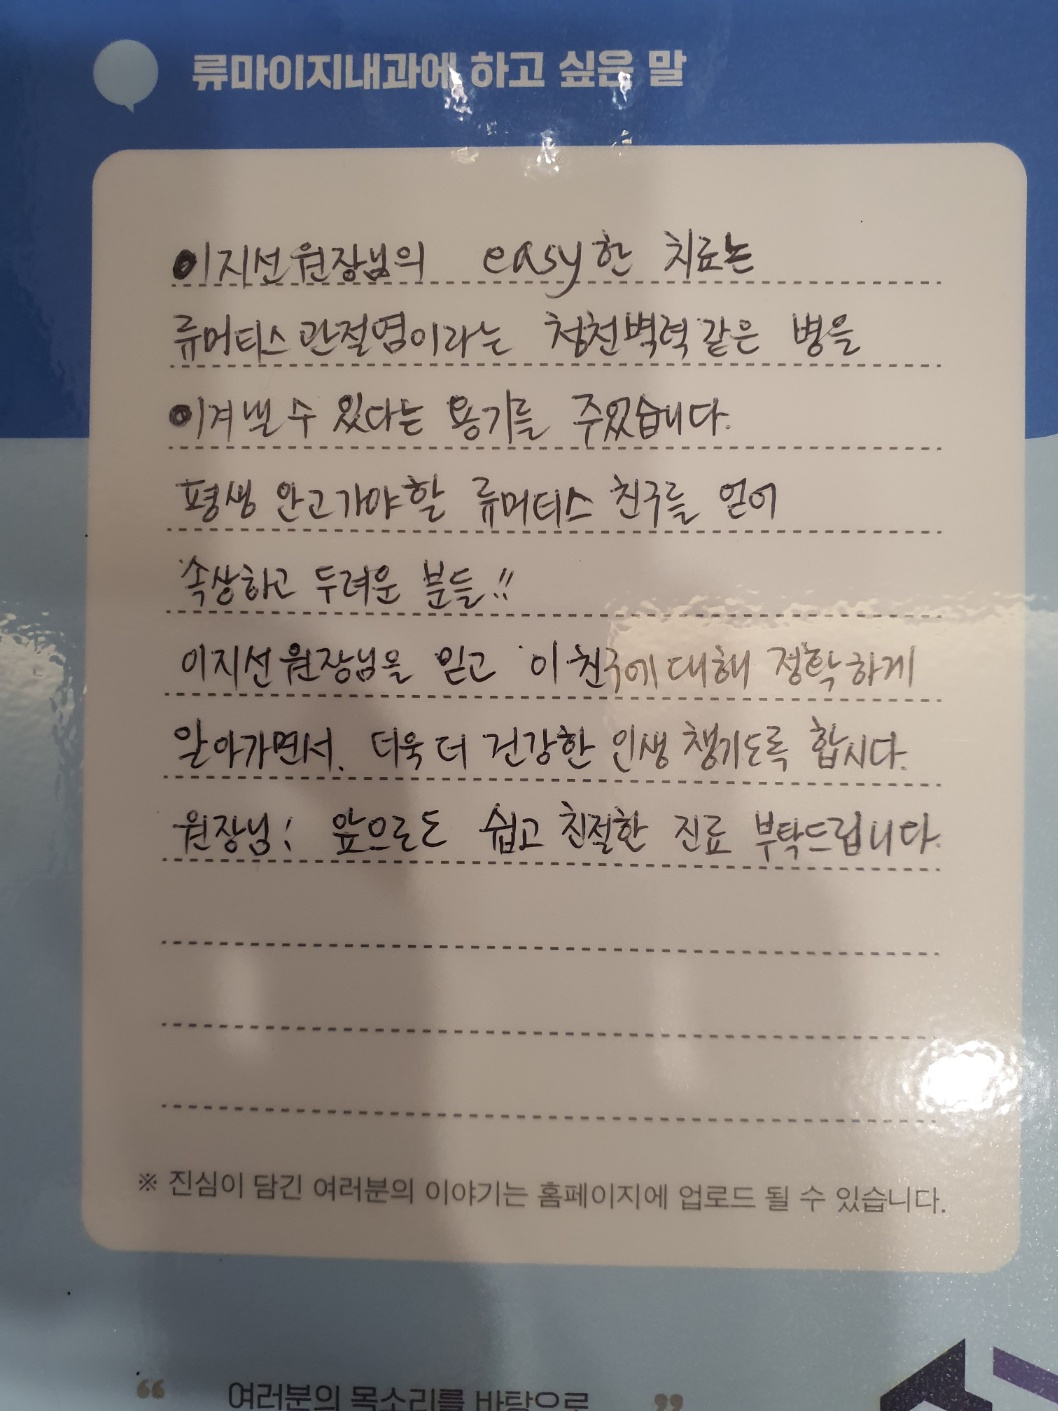 류마이지내과에 하고 싶은 말
이지선 원장님의 easy한 치료는
류머티스 관절염이라는 청천벽력 같은 병을
이겨낼 수 있다는 용기를 주었습니다.
평생 안고가야할 류머티스 친구를 얻어
속상하고 두려운 분들!!
이지선 원장님을 믿고 이 친구에 대해 정확하게
알아가면서, 더욱 더 건강한 인생 챙기도록 합시다.
원장님! 앞으로도 쉽고 친절한 진료 부탁드립니다.
※ 진심이 담긴 여러분의 이야기는 홈페이지에 업로드 될 수 있습니다.
“ 여러분의 목소리를 바탕으로 ”